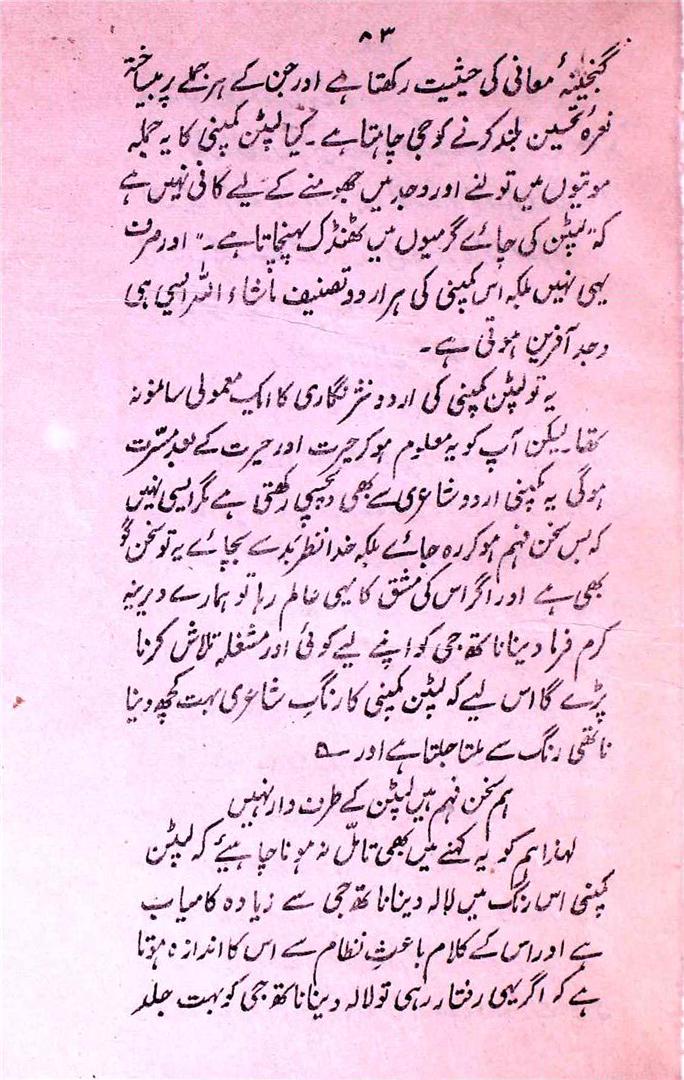 ۸۳
گنجینۂ معانی کی حیثیت رکھتا ہے اور جن کے ہر جملے پر بیساختہ
نعرۂ تحسین بلند کرنے کو جی چاہتا ہے ۔ کیا لپٹن کمپنی کا یہ جملہ
موتیوں میں تولنے اور وجد میں جھومنے کے لیے کافی نہیں ہے
کہ "لپٹن کی چائے گرمیوں میں ٹھنڈک پہنچاتا ہے ۔" اور صرف
یہی نہیں بلکہ اس کمپنی کی ہر اردو تصنیف ماشاء اللہ ایسی ہی
وجد آفرین ہوتی ہے ۔
یہ تو لپٹن کمپنی کی اردو نثر نگاری کا ایک معمولی سا نمونہ
تھا۔ لیکن آپ کو یہ معلوم ہو کر حیرت اور حیرت کے بعد مسرّت
ہوگی یہ کمپنی اردو شاعری سے بھی دلچسپی رکھتی ہے مگر ایسی نہیں
کہ بس سخن فہم ہو کر رہ جائے بلکہ خدا نظرِ بد سے بچائے یہ تو سخن گو
بھی ہے اور اگر اس کی مشق کا یہی عالم رہا تو ہمارے دیرینہ
کرم فرما دینا ناتھ جی کو اپنے لیے کوئی اور مشغلہ تلاش کرنا
پڑے گا اس لیے کہ لپٹن کمپنی کا رنگِ شاعری بہت کچھ دینا
ناتھی رنگ سے ملتا جلتا ہے اور ؎
ہم سخن فہم ہیں لپٹن کے طرف دار نہیں
لہذا ہم کو یہ کہنے میں بھی تامّل نہ ہونا چاہیئے کہ لپٹن
کمپنی اس رنگ میں لالہ دینا ناتھ جی سے زیادہ کامیاب
ہے اور اس کے کلام باعثِ نظام سے اس کا اندازہ ہوتا
ہے کہ اگر یہی رفتار رہی تو لالہ دینا ناتھ جی کو بہت جلد